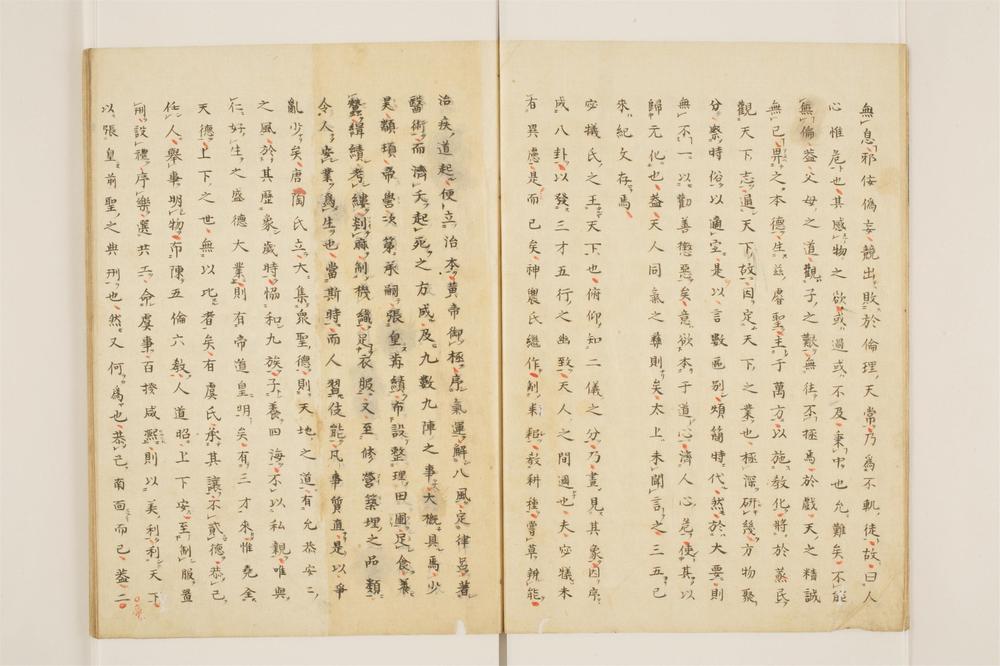 無息邪佞偽妄競出敗於倫理天常乃為不軌徒故曰人
心惟危也其感物之欲或過或不及秉中也允難矣不能
無倫益父母之道觀子之艱無往不極焉於戲天之精誠
無已畀之本德生茲睿聖主于萬方以施教化將於蒸民
觀天下志通天下故因定天下之業也極深研幾方物聚
分察時俗以適宜是以言數區別煩簡時代然於大要則
無不一以勸善懲惡矣意欲本于道心濟人心危使其以
歸元化也蓋天人同氣之彝則矣太上未聞言之三五已
來紀文存焉
宓犧氏之王天下也俯仰知二儀之分乃畫見其象因序
成八卦以發三才五行之幽致天人之間通也夫宓犧本
有異慮是而已矣神農氏継作制耒耜教耕種嘗草辨能
治疾道起便立治本黄帝御極序氣運解八風定律呂著
醫術而濟夭起死之方成及九數九陣之事大概具焉少
昊顓頊帝嚳次第承嗣張皇前績布設整理田圃足食養
蠶緝績考縷割麻制機織足衣服又至修營築埋之品類
令人安業為生也當斯時而人習伎能凡事質直是以爭
亂少矣唐陶氏立大集衆聖德則天地之道有允恭安安
之風於其歷象歲時協和九族子養四海不以私親唯與
仁好生之盛德大業則有帝道皇明矣有三才來惟堯全
天德上下之世無以比者矣有虞氏承其讓不貳德恭己
任人舉事明物布陳五倫六教人道昭上下安至制服置
刑設禮序樂選共工命虞事百揆咸熙則以美利利天下
以張皇前聖之典刑也然又何為也恭己南面而已蓋二